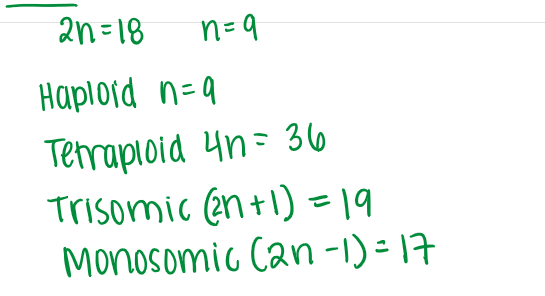 2n=18 n=9
Haploid n=9
Tetraploid 4n= 36
Trisomic (2n+1) = 19
Monosomic (2n-1)= 17